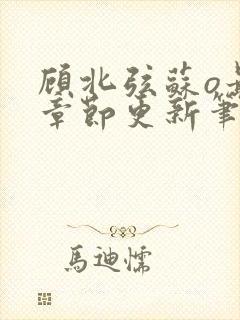 顾北弦蘇o
章節更新筆
馬迪懦